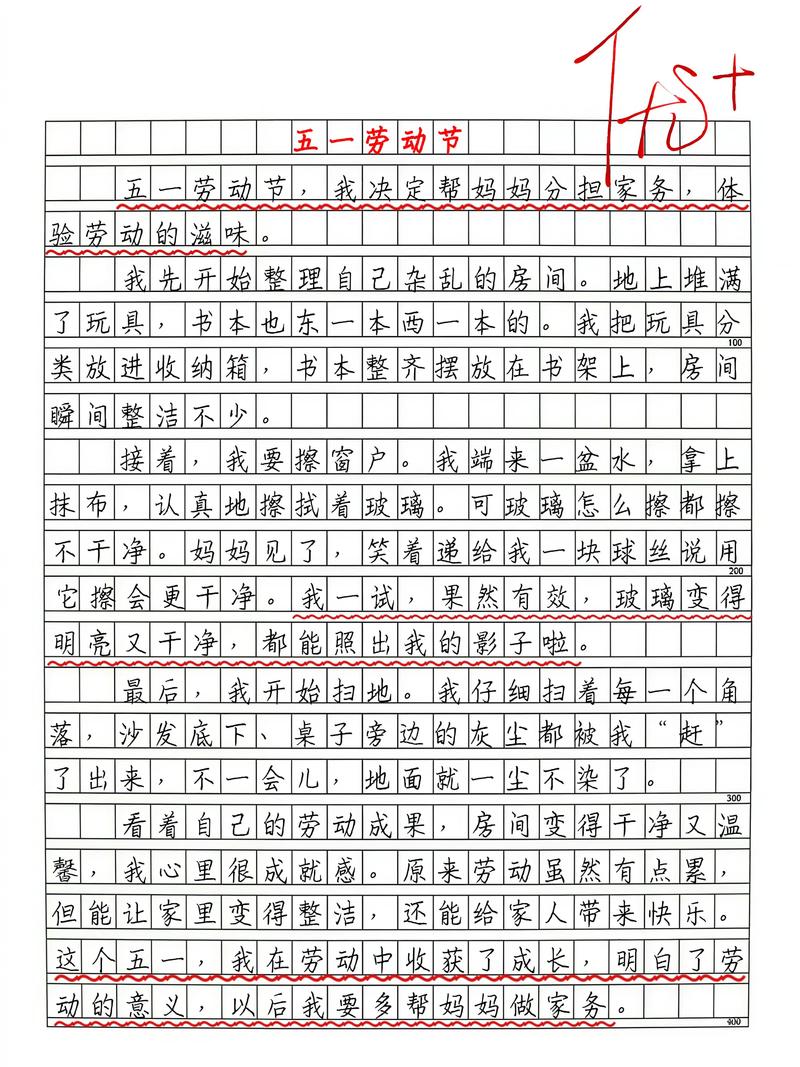 优+
五一劳动节
五一劳动节，我决定帮妈妈分担家务，体
验劳动的滋味。
我先开始整理自己杂乱的房间。地上堆满
了玩具，书本也东一本西一本的。我把玩具分
100
类放进收纳箱，书本整齐摆放在书架上，房间
瞬间整洁不少。
接着，我要擦窗户。我端来一盆水，拿上
抹布，认真地擦拭着玻璃。可玻璃怎么擦都擦
不干净。妈妈见了，笑着递给我一块球丝说用
200
它擦会更干净。我一试，果然有效，玻璃变得
明亮又干净，都能照出我的影子啦。
最后，我开始扫地。我仔细扫着每一个角
落，沙发底下、桌子旁边的灰尘都被我“赶”
了出来，不一会儿，地面就一尘不染了。
300
看着自己的劳动成果，房间变得干净又温
馨，我心里很成就感。原来劳动虽然有点累，
但能让家里变得整洁，还能给家人带来快乐。
这个五一，我在劳动中收获了成长，明白了劳
动的意义，以后我要多帮妈妈做家务。
400